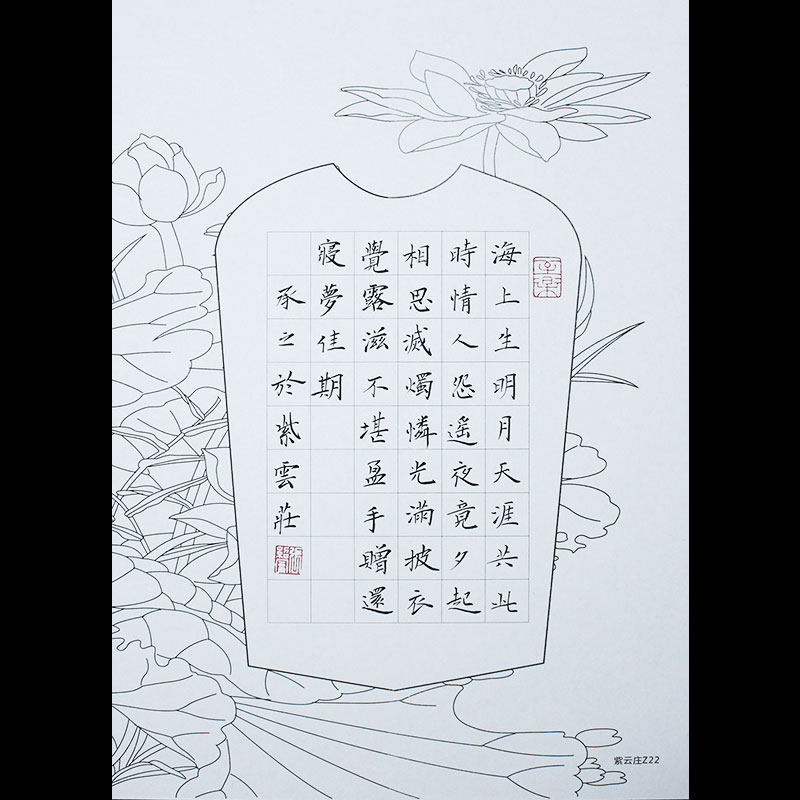 海上生明月天涯共此
時情人怨遥夜竟夕起
相思滅燭憐光滿披衣
覺露滋不堪盈手贈還
寝夢佳期
承之於紫雲莊
紫云庄Z22